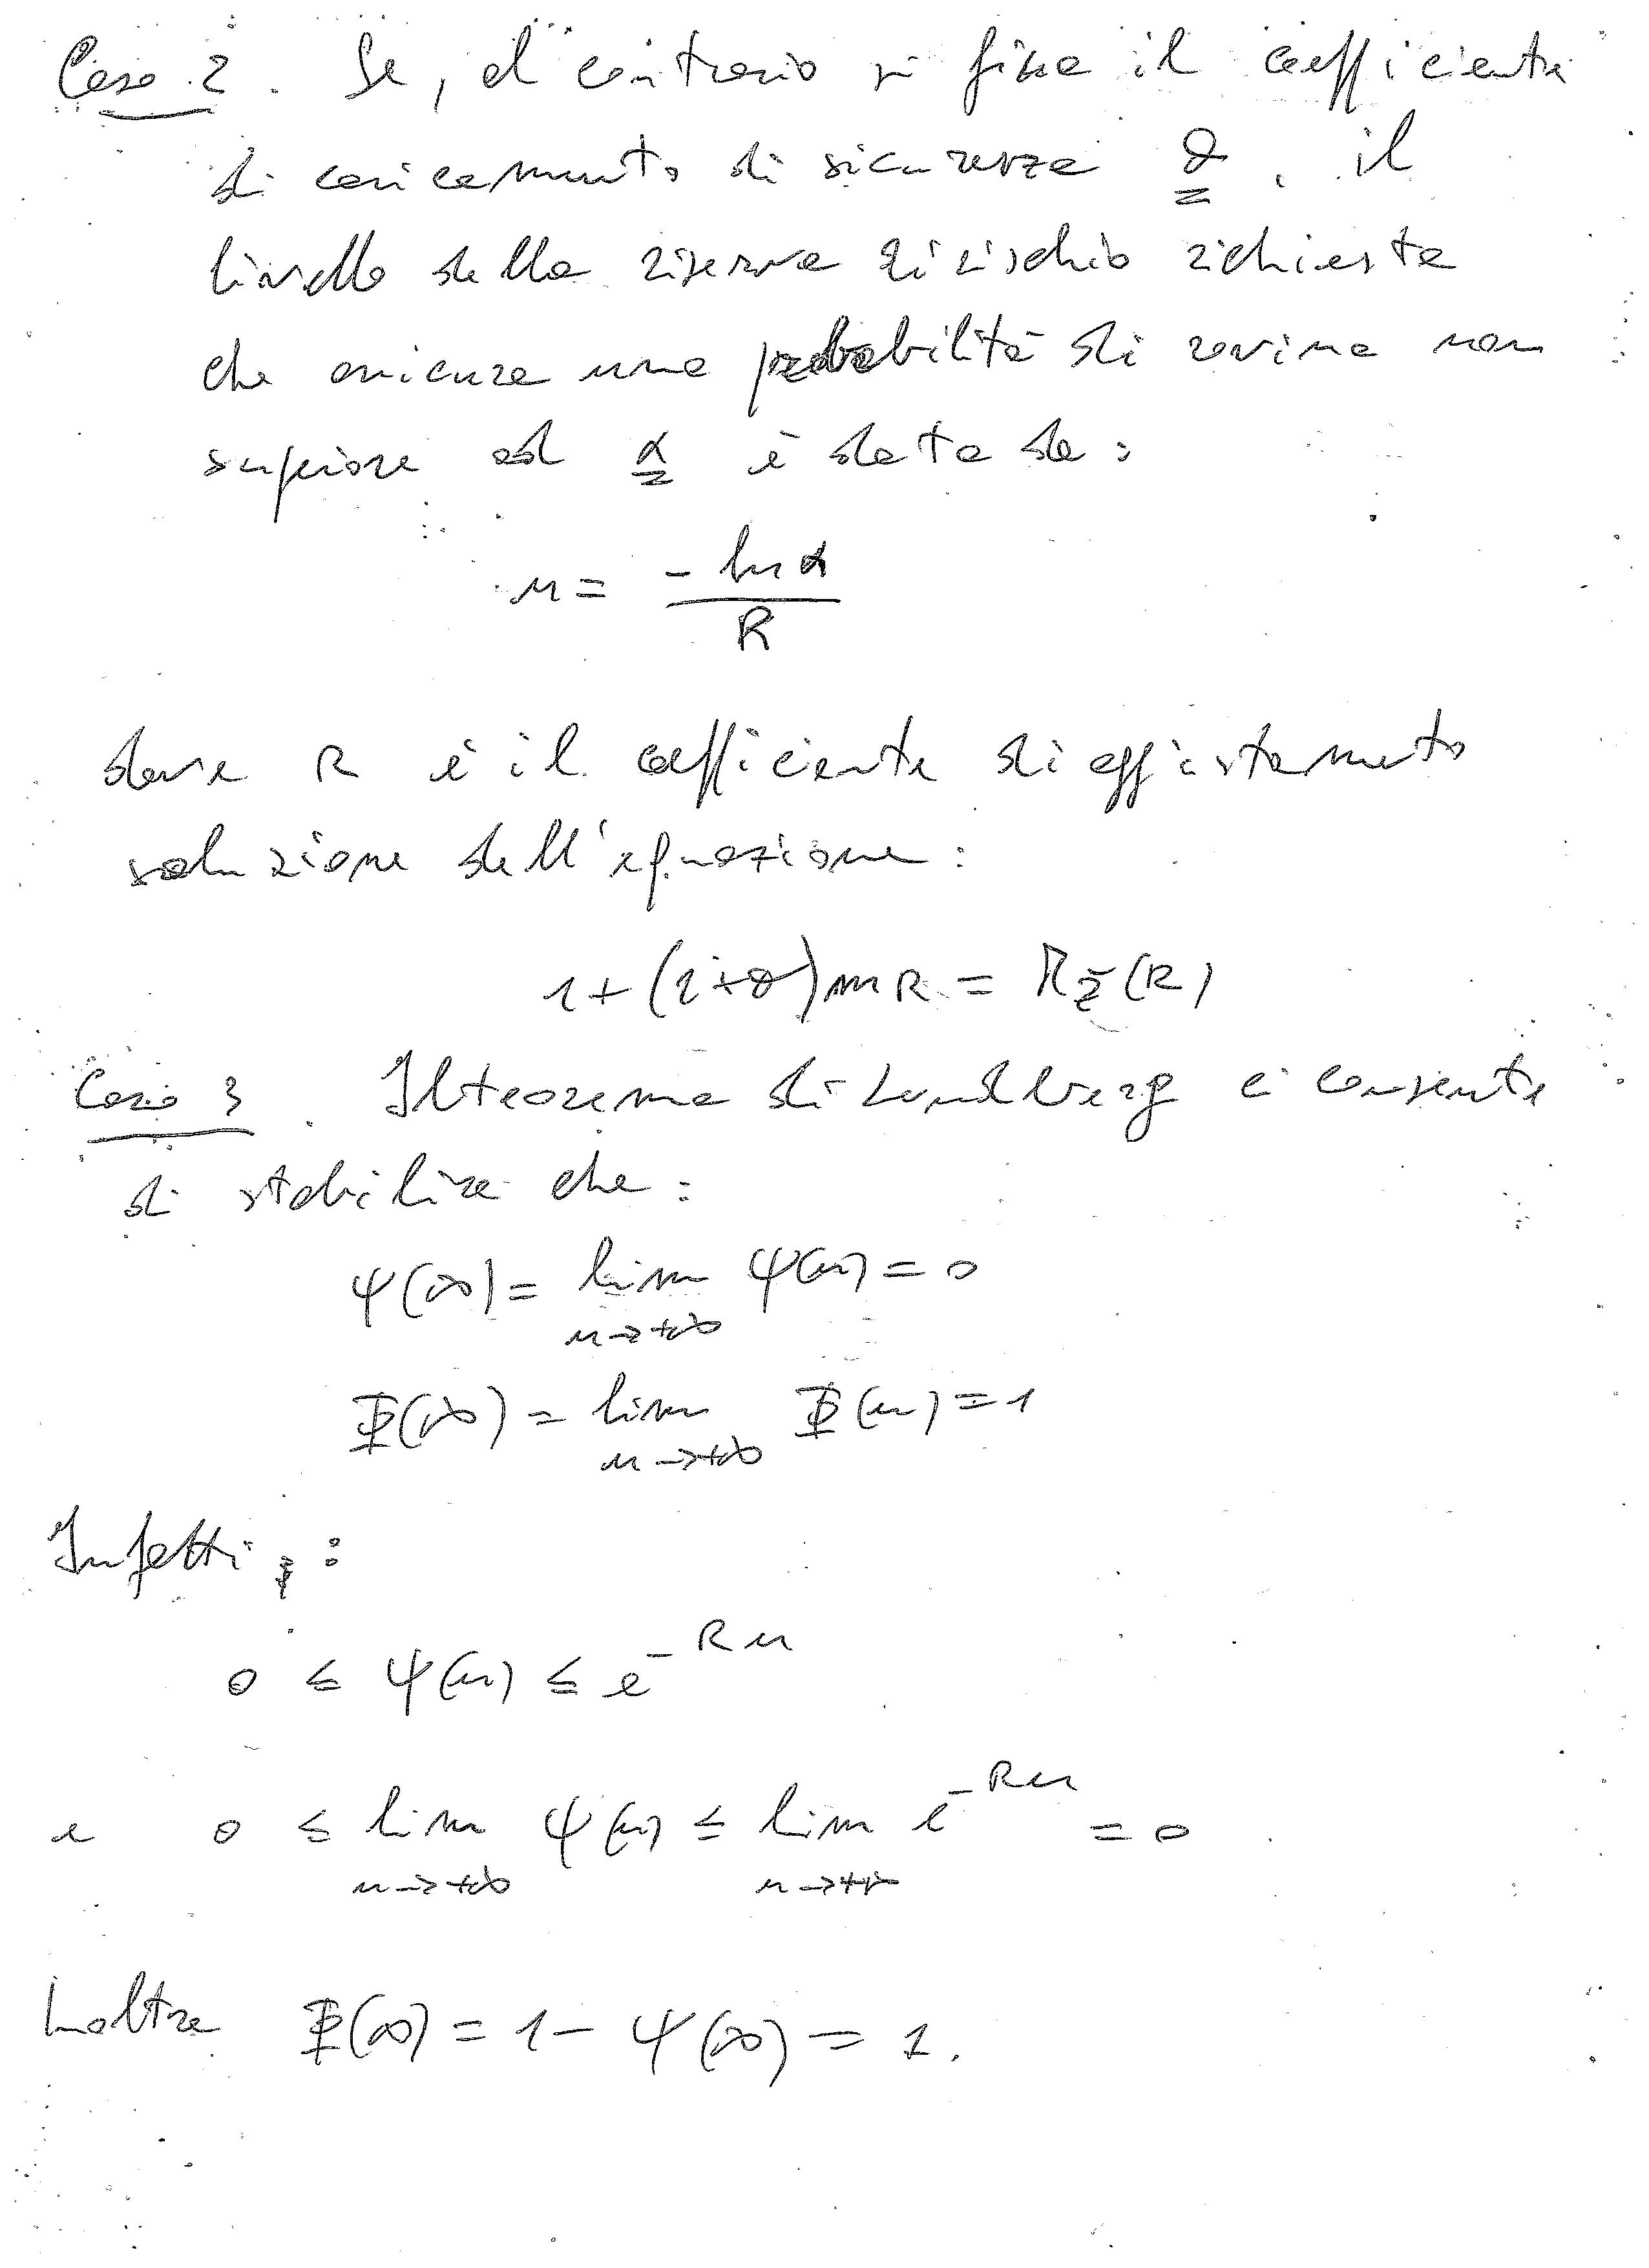 Caso 2. Se, al contrario si fissa il coefficiente
di caricamento di sicurezza θ, il
livello della riserva di rischio richiesta
che assicura una probabilità di rovina non
superiore ad α è data da:
u = -ln α / R
dove R è il coefficiente di aggiustamento
soluzione dell'equazione:
1+(1+θ)mR = M_Z(R)
Caso 3. Il teorema di Lundberg ci consente
di stabilire che:
Ψ(∞) = lim_{u→+∞} Ψ(u) = 0
Φ(∞) = lim_{u→+∞} Φ(u) = 1
Infatti:
0 ≤ Ψ(u) ≤ e^{-Ru}
e 0 ≤ lim_{u→+∞} Ψ(u) ≤ lim_{u→+∞} e^{-Ru} = 0
Inoltre Φ(∞) = 1 - Ψ(∞) = 1.